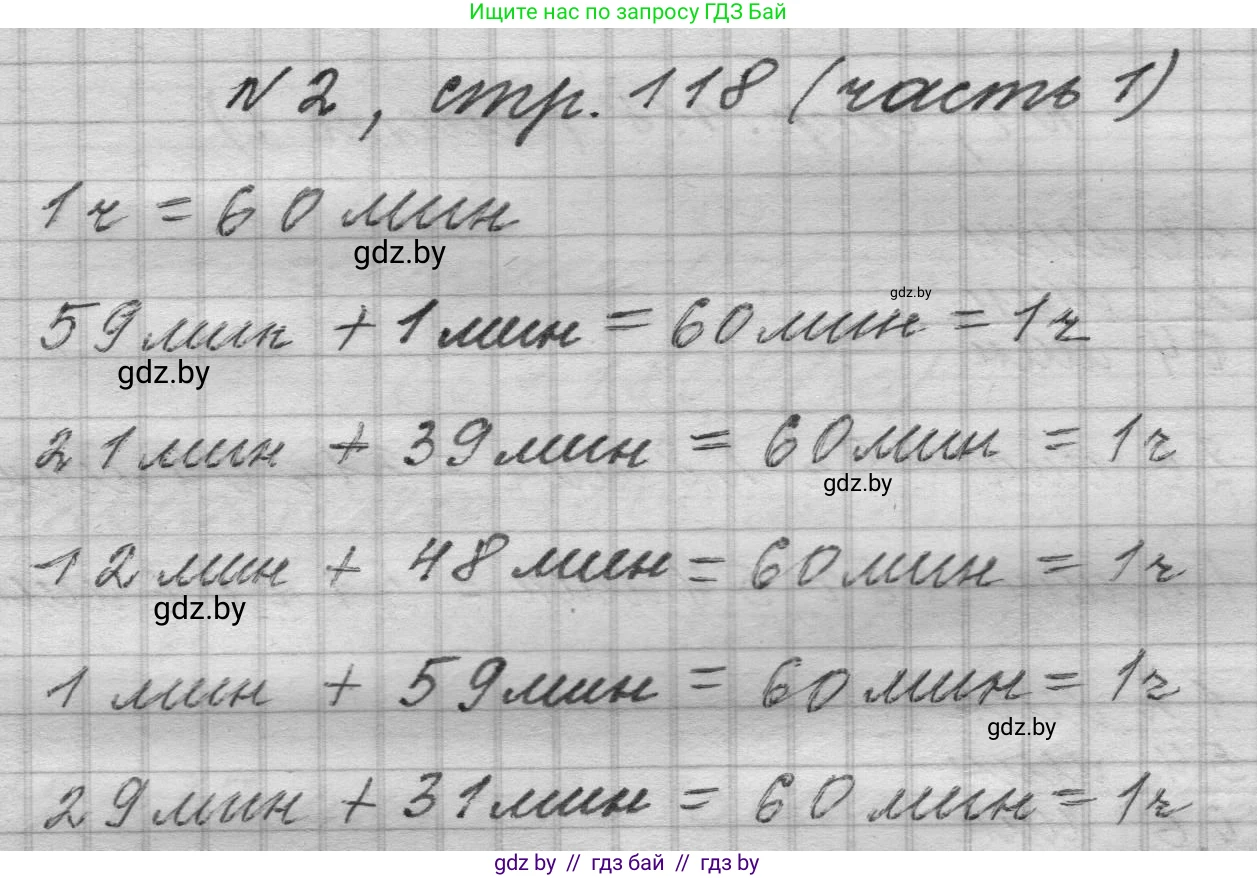 Ищите нас по запросу ГДЗ Бай
№2, стр. 118 (часть 1)
1ч = 60 мин
gdz.by
gdz.by
59мин + 1мин = 60мин = 1ч
gdz.by
21мин + 39мин = 60мин = 1ч
gdz.by
12мин + 48мин = 60мин = 1ч
gdz.by
1 мин + 59мин = 60мин = 1ч
gdz.by
29мин + 31мин = 60 мин = 1ч
gdz by // гдз бай // гдз by